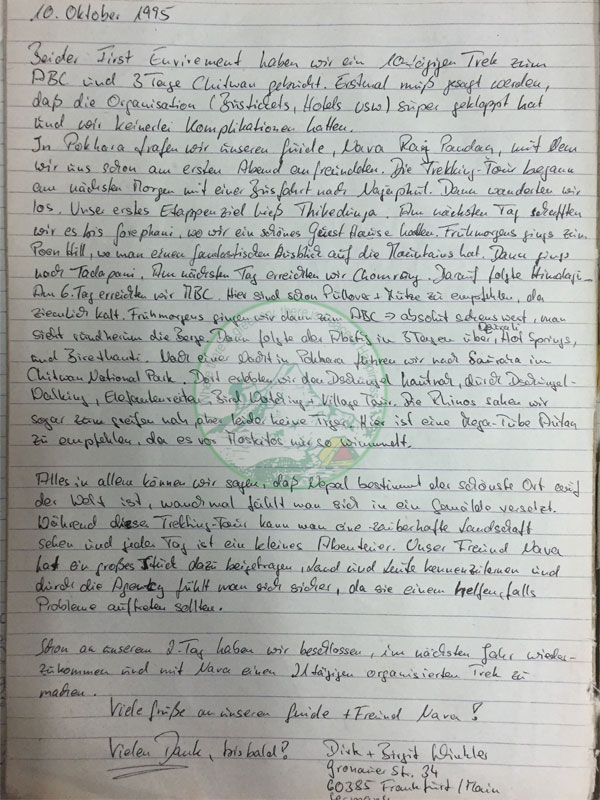 10. Oktober 1995
Bei der First Envirement haben wir ein 10-tägigen Trek zum
ABC und 3 Tage Chitwan gebucht. Erstmal muß gesagt werden,
daß die Organisation (Bustickets, Hotels usw) super geklappt hat
und wir keinerlei Komplikationen hatten.
In Pokhara trafen wir unseren Guide, Nava Raj Pandag, mit dem
wir uns schon am ersten Abend anfreundeten. Die Trekking-Tour begann
am nächsten Morgen mit einer Busfahrt nach Najaphul. Dann wanderten wir
los. Unser erstes Etappenziel hieß Thikedunja. Am nächsten Tag schafften
wir es bis Gorephani, wo wir ein schönes Guest Hause hatten. Frühmorgens gings zum
Poon Hill, wo man einen fantastischen Ausblick auf die Mountains hat. Dann gings
nach Tadapani. Am nächsten Tag erreichten wir Chomrong. Darauf folgte Himalaji.
Am 6. Tag erreichten wir MBC. Hier sind schon Pullover + Mütze zu empfehlen, da
ziemlich kalt. Frühmorgens gingen wir dann zum ABC → absolut sehenswert, man
sieht rundherum die Berge. Dann folgte der Abstieg in 3 Tagen über Hot Springs,
und Birethanti. Nach einer Nacht in Pokhara fuhren wir nach Sauraha im
Chitwan National Park. Dort erlebten wir den Dschungel hautnah, durch Dschungel-
Walking, Elefantenreiten, Bird Watching + Village Tour. Die Rhinos sahen wir
sogar zum greifen nah, aber leider keine Tiger. Hier ist eine Mega-Tube Autan
zu empfehlen, da es vor Moskitos nur so wimmelt.
Alles in allem können wir sagen, daß Nepal bestimmt der schönste Ort auf
der Welt ist, manchmal fühlt man sich in ein Gemälde versetzt.
Während dieser Trekking-Tour kann man eine zauberhafte Landschaft
sehen und jeder Tag ist ein kleines Abenteuer. Unser Freund Nava
hat ein großes Stück dazu beigetragen, Land und Leute kennenzulernen und
durch die Agency fühlt man sich sicher, da sie einem helfen, falls
Probleme auftreten sollten.
Schon an unserem 2. Tag haben wir beschlossen, im nächsten Jahr wieder-
zukommen und mit Nava einen 21 tägigen organisierten Trek zu
machen.
Viele Grüße an unseren Guide + Freund Nava!
Vielen Dank, bis bald!
Dirk + Birgit Winkler
Gronauer Str. 34
60385 Frankfurt/Main
Germany